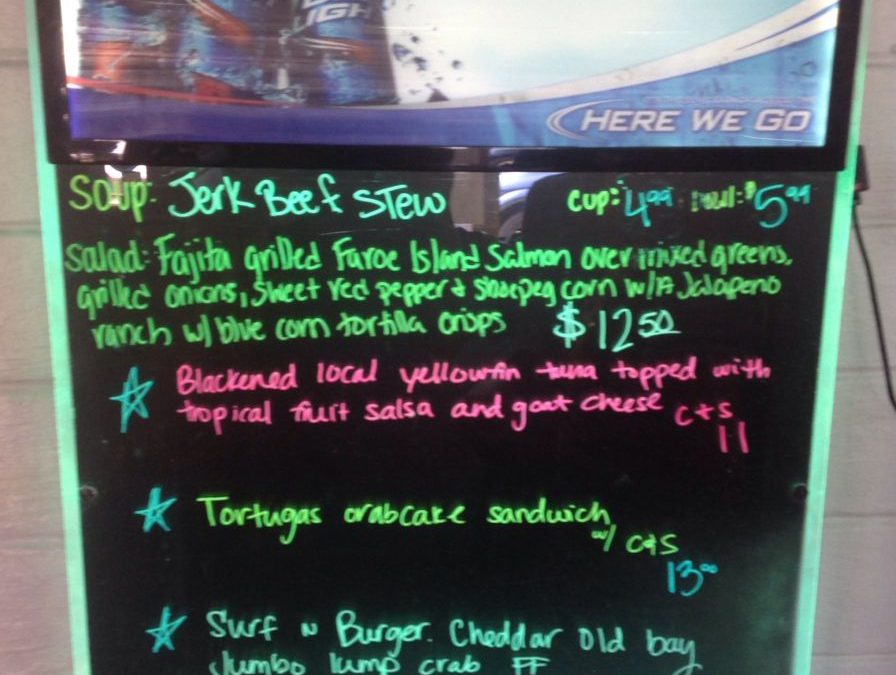 LIGHT
HERE WE GO
Soup: Jerk Beef Stew cup: 4.99 bowl: $5.99
Salad: Fajita grilled Faroe Island Salmon over mixed greens,
grilled onions, sweet red pepper & shoepeg corn w/ A Jalapeno
ranch w/ blue corn tortilla crisps $12.50
Blackened local yellowfin tuna topped with
tropical fruit salsa and goat cheese c+s
11
Tortugas crabcake sandwich
w/ c+s
13.00
Surf n Burger. Cheddar Old bay
Jumbo lump crab FF